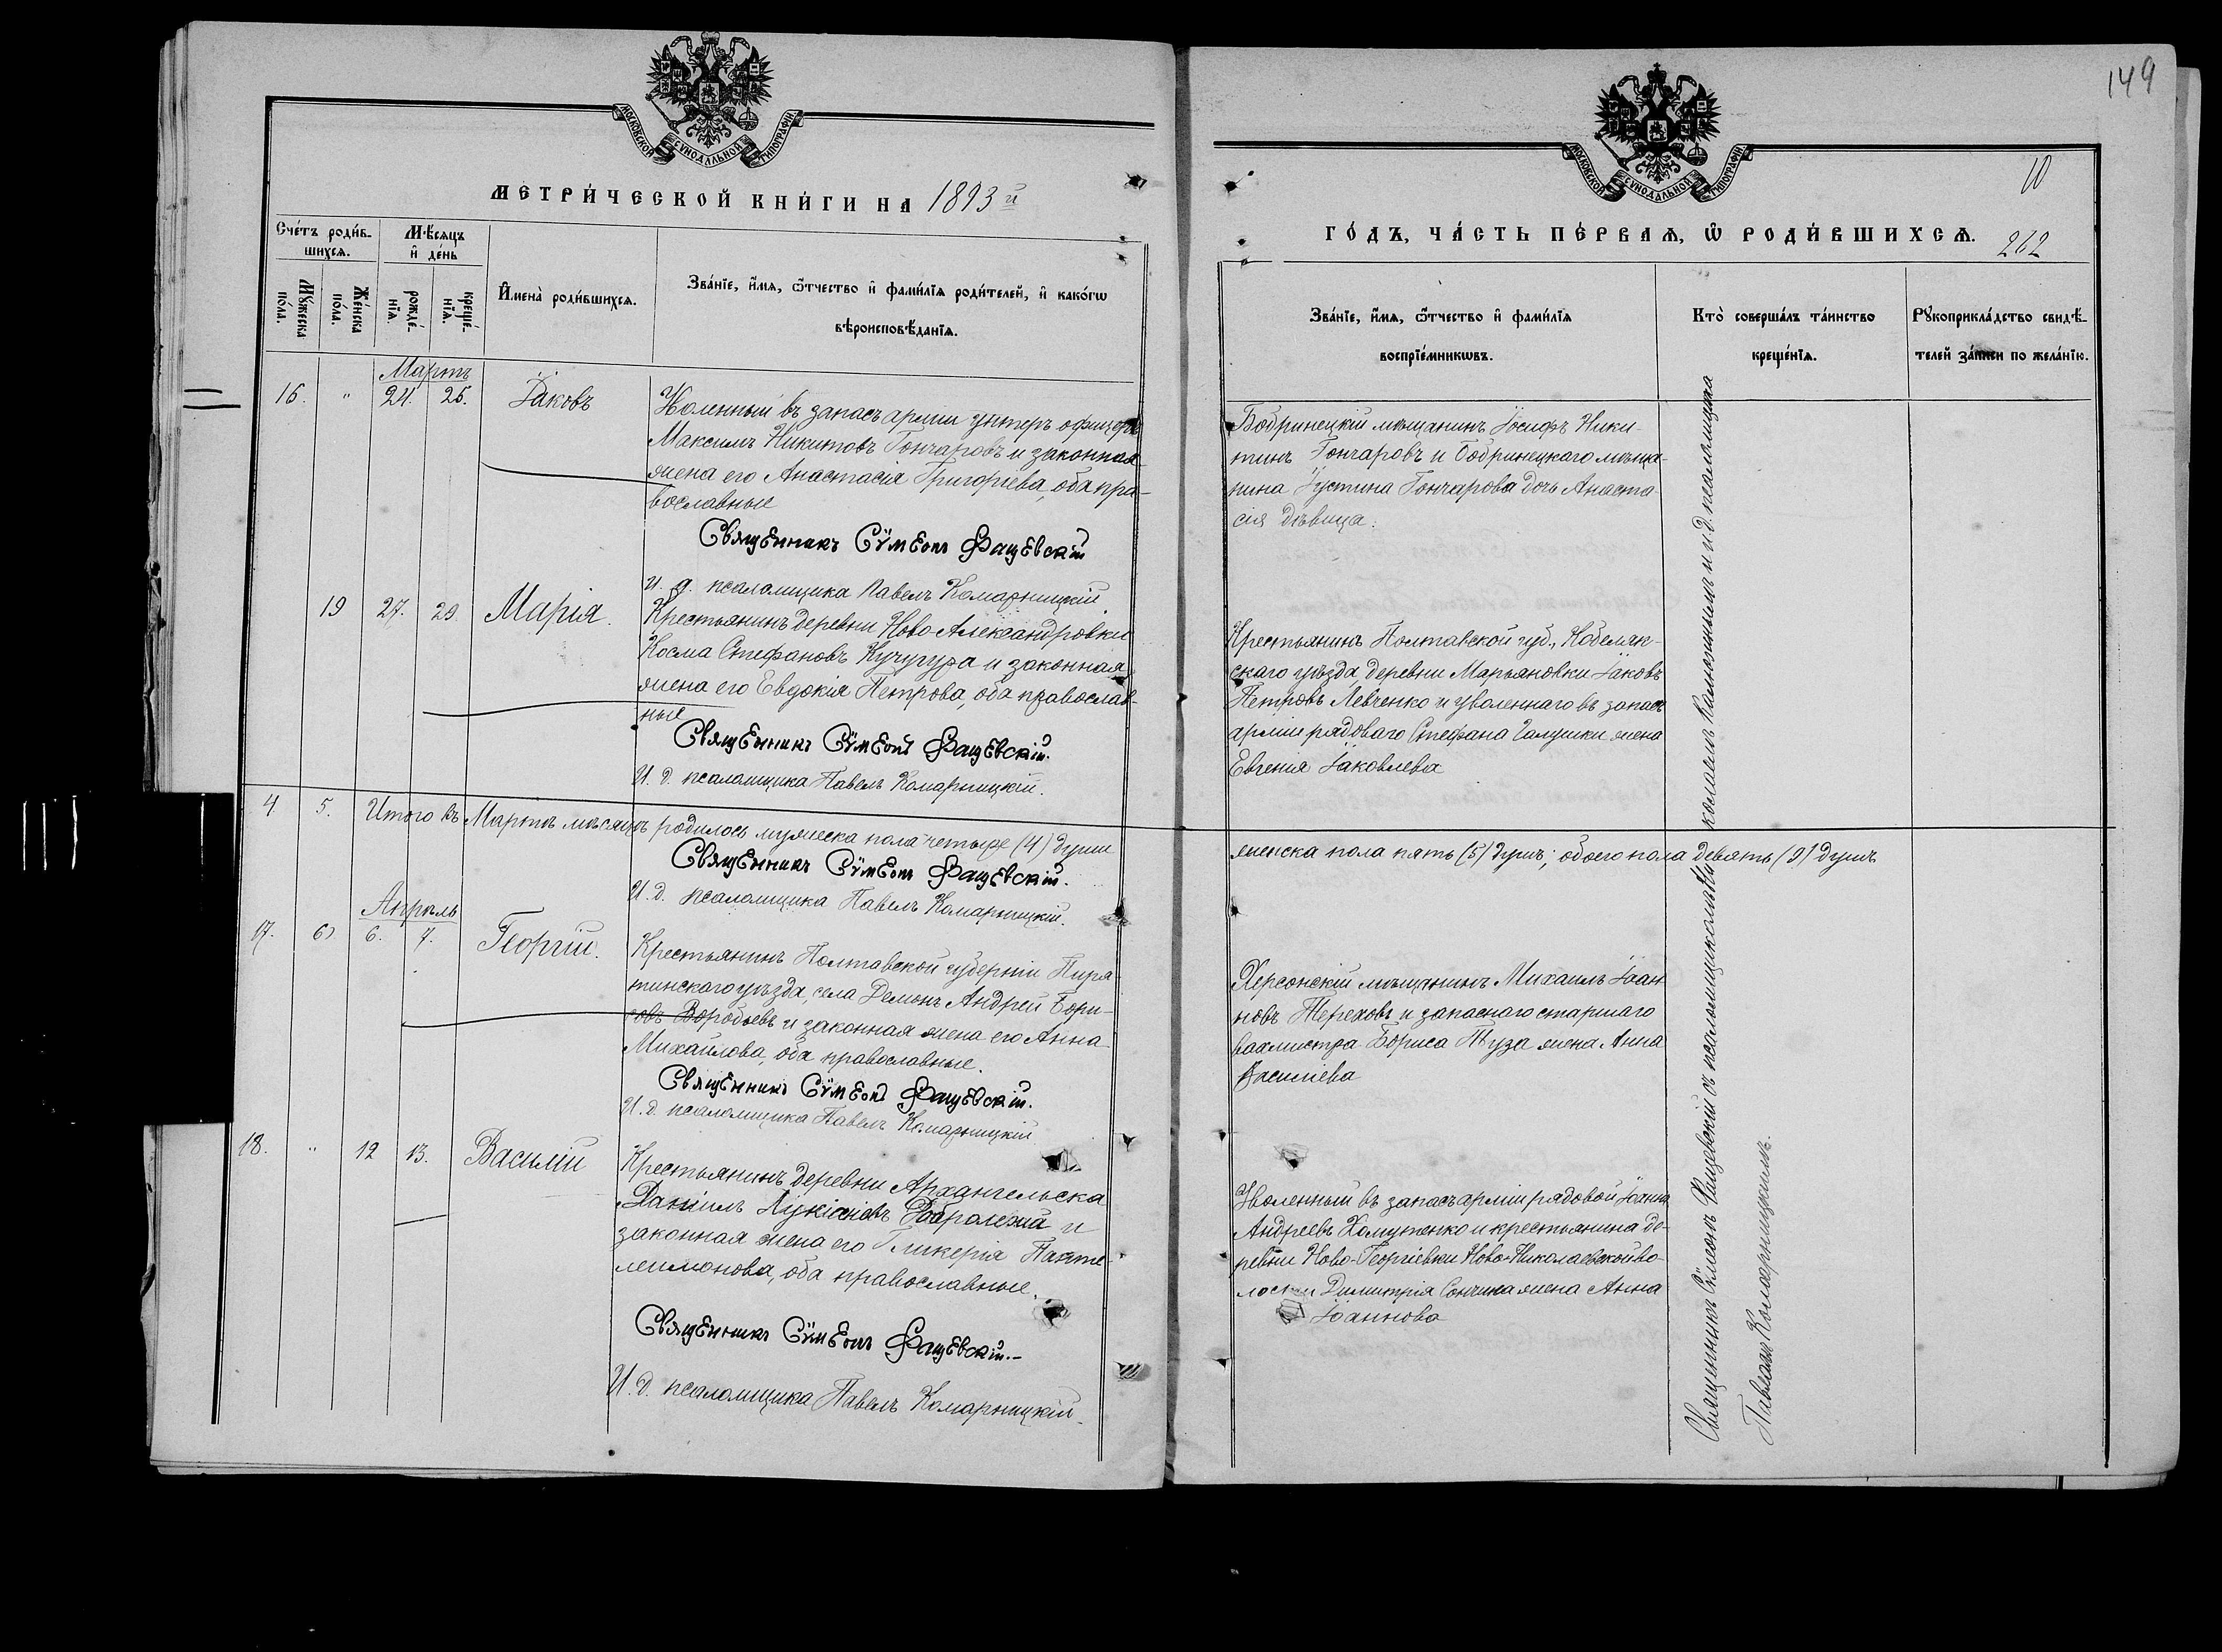 МОСКОВСКОЙ СУНОДАЛЬНОЙ ТИПОГРАФІИ
МЕТРИ́ЧЕСКОЙ КНИ́ГИ НА 1893 й
Сче́тъ роди́в-
шихсѧ.
Мѣ́сѧцъ
и҆ де́нь
Мꙋ́жеска
по́ла.
Же́нска
по́ла.
рожде́-
нїѧ.
креще́-
нїѧ.
И҆мена̀ роди́вшихсѧ.
Зва́нїе, и҆́мѧ, ѻ҆́тчество и҆ фами́лїѧ роди́телей, и҆ како́гѡ
вѣроисповѣ́данїѧ.
Мартъ
16. " 24. 25. Іаковъ
Уволенный въ запасъ арміи унтеръ офицеръ
Максимъ Никитовъ Гончаровъ и законная
жена его Анастасія Григоріева, оба пра-
вославные
Священникъ Сѵмеонъ Фащевскій
И. д. псаломщика Павелъ Комарницкій.
19 27. 29. Марія.
Крестьянинъ деревни Ново-Александровки
Косма Стефановъ Кучугура и законная
жена его Евдокія Петрова, оба православ-
ные
Священникъ Сѵмеонъ Фащевскій.
И. д. псаломщика Павелъ Комарницкій.
4 5. Итого въ Мартѣ мѣсяцѣ родилось мужеска пола четыре (4) души
Священникъ Сѵмеонъ Фащевскій.
И. д. псаломщика Павелъ Комарницкій.
Апрѣль
17. 6. 7. Георгій.
Крестьянинъ Полтавской губерніи Пиря-
тинскаго уѣзда, села Демокъ Андрей Бори-
совъ Воробьевъ и законная жена его Анна
Михайлова, оба православные.
Священникъ Сѵмеонъ Фащевскій.
И. д. псаломщика Павелъ Комарницкій
18. " 12 13. Василій
Крестьянинъ деревни Архангельска
Даніилъ Лукіановъ и
законная жена его Гликерія Панте-
леимонова, оба православные.
Священникъ Сѵмеонъ Фащевскій.-
И. д. псаломщика Павелъ Комарницкій.
149
10
МОСКОВСКОЙ СУНОДАЛЬНОЙ ТИПОГРАФІИ
ГО́ДЪ, ЧА́СТЬ ПЕ́РВАѦ, Ѡ҆ РОДИ́ВШИХСѦ.
262
Зва́нїе, и҆́мѧ, ѻ҆́тчество и҆ фами́лїѧ
воспрїе́мникѡвъ.
Кто̀ соверша́лъ та́инство
креще́нїѧ.
Рꙋкоприкла́дство свидѣ́-
телей за́писи по жела́нїю.
Бобринецкій мѣщанинъ Іосифъ Ники-
тинъ Гончаровъ и Бобринецкаго мѣща-
нина Густина Гончарова дочь Анаста-
сія дѣвица.
Крестьянинъ Полтавской губ., Кобеляк-
скаго уѣзда, деревни Марьяновки Іаковъ
Петровъ Левченко и уволеннаго въ запасъ
арміи рядоваго Стефана Галушки жена
Евгенія Іаковлева
женска пола пять (5) душъ; обоего пола девять (9) душъ
Херсонскій мѣщанинъ Михаилъ Іоан-
новъ Тереховъ и запаснаго старшаго
вахмистра Бориса Туза жена Анна
Василіева
Уволенный въ запасъ арміи рядовой Іоаннъ
Андреевъ Хомутенко и крестьянина де-
ревни Ново-Георгіевки Ново-Николаевской во-
лости Димитрія Сончика жена Анна
Іоаннова
Священникъ Сѵмеонъ Фащевскій съ псаломщикомъ Николаемъ и и. д. псаломщика
Павломъ Комарницкимъ.